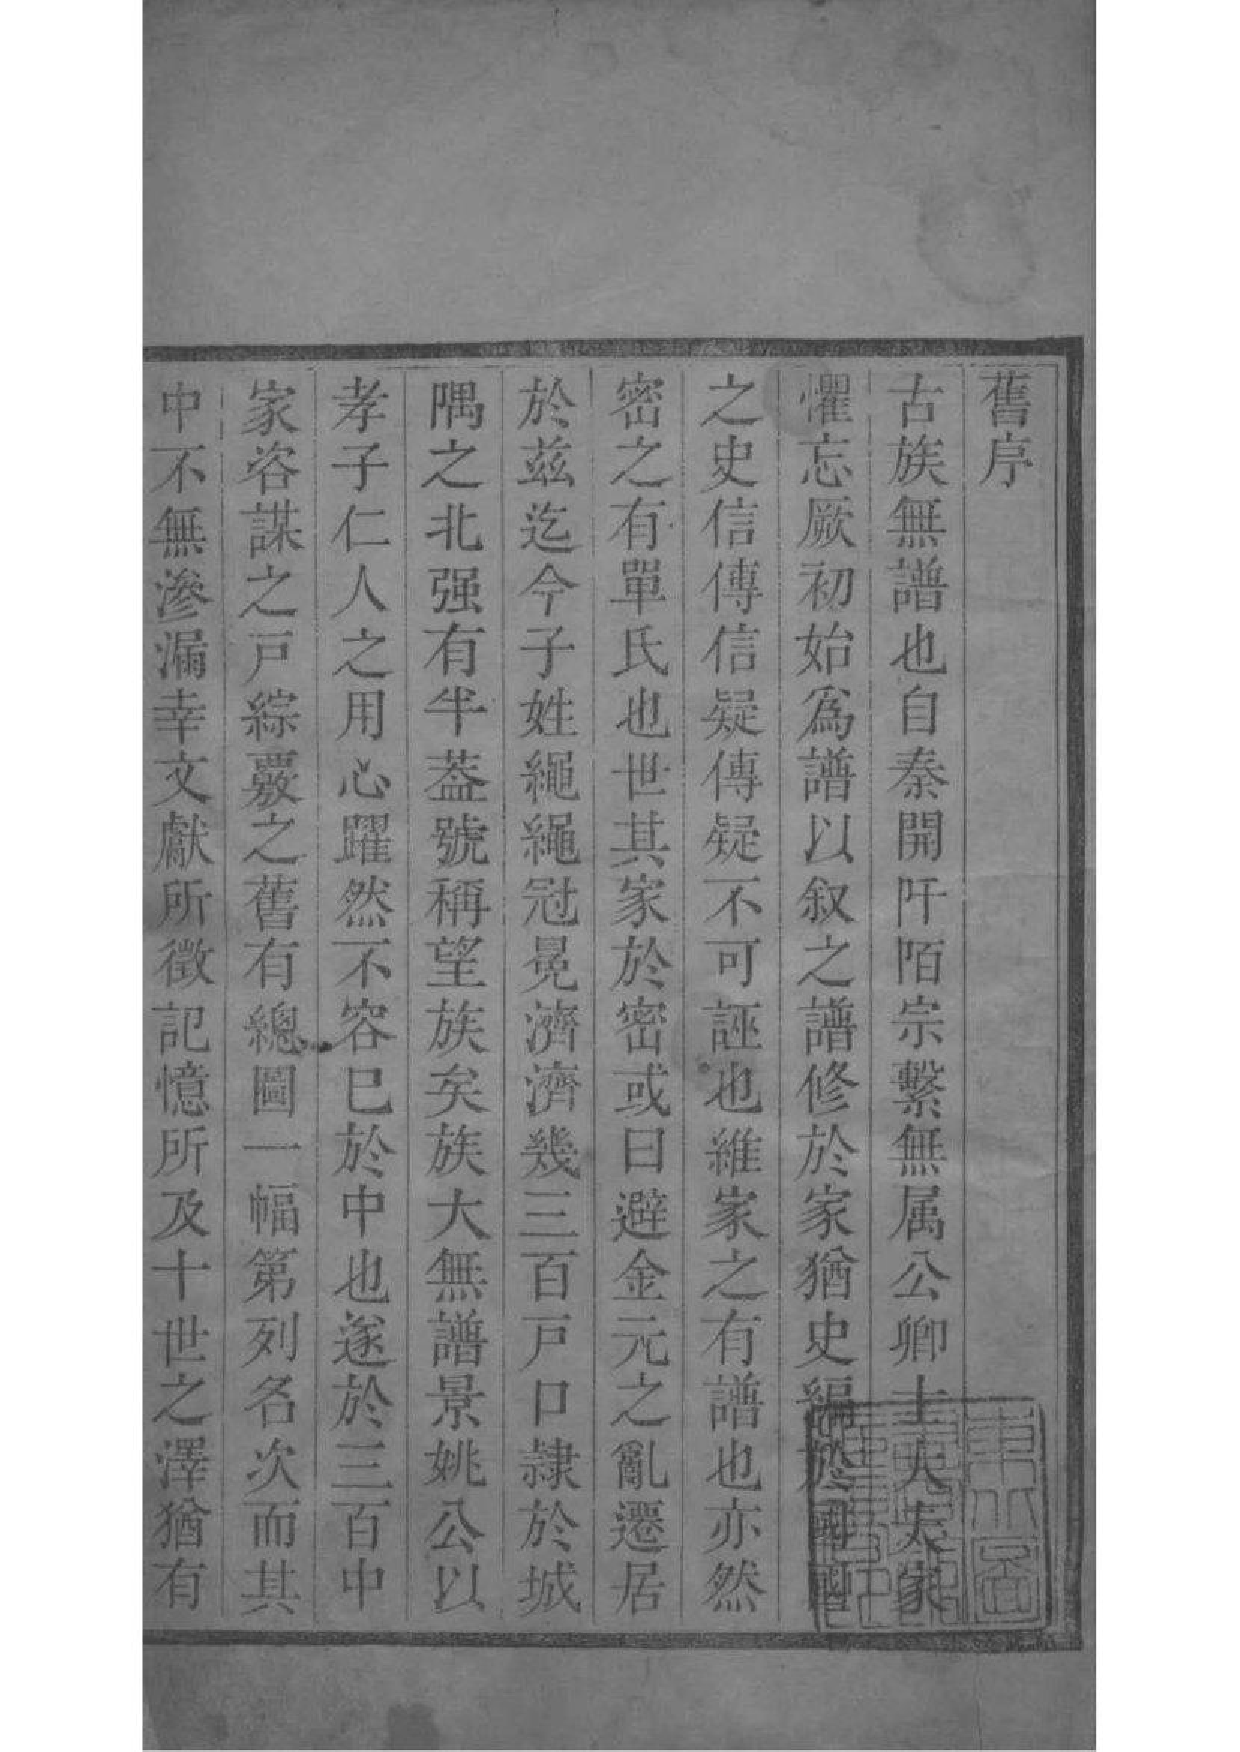 舊序
古族無譜也自秦開阡陌宗繫無属公卿士大夫家
懼忘厥初始爲譜以叙之譜修於家猶史編於國國
之史信傳信疑傳疑不可誣也維家之有譜也亦然
密之有單氏也世其家於密或曰避金元之亂遷居
於茲迄今子姓繩繩冠冕濟濟幾三百戸口隷於城
隅之北强有半葢號稱望族矣族大無譜景姚公以
孝子仁人之用心躍然不容已於中也遂於三百中
家咨謀之戸綜覈之舊有總圖一幅第列名次而其
中不無滲漏幸文獻所徵記憶所及十世之澤猶有